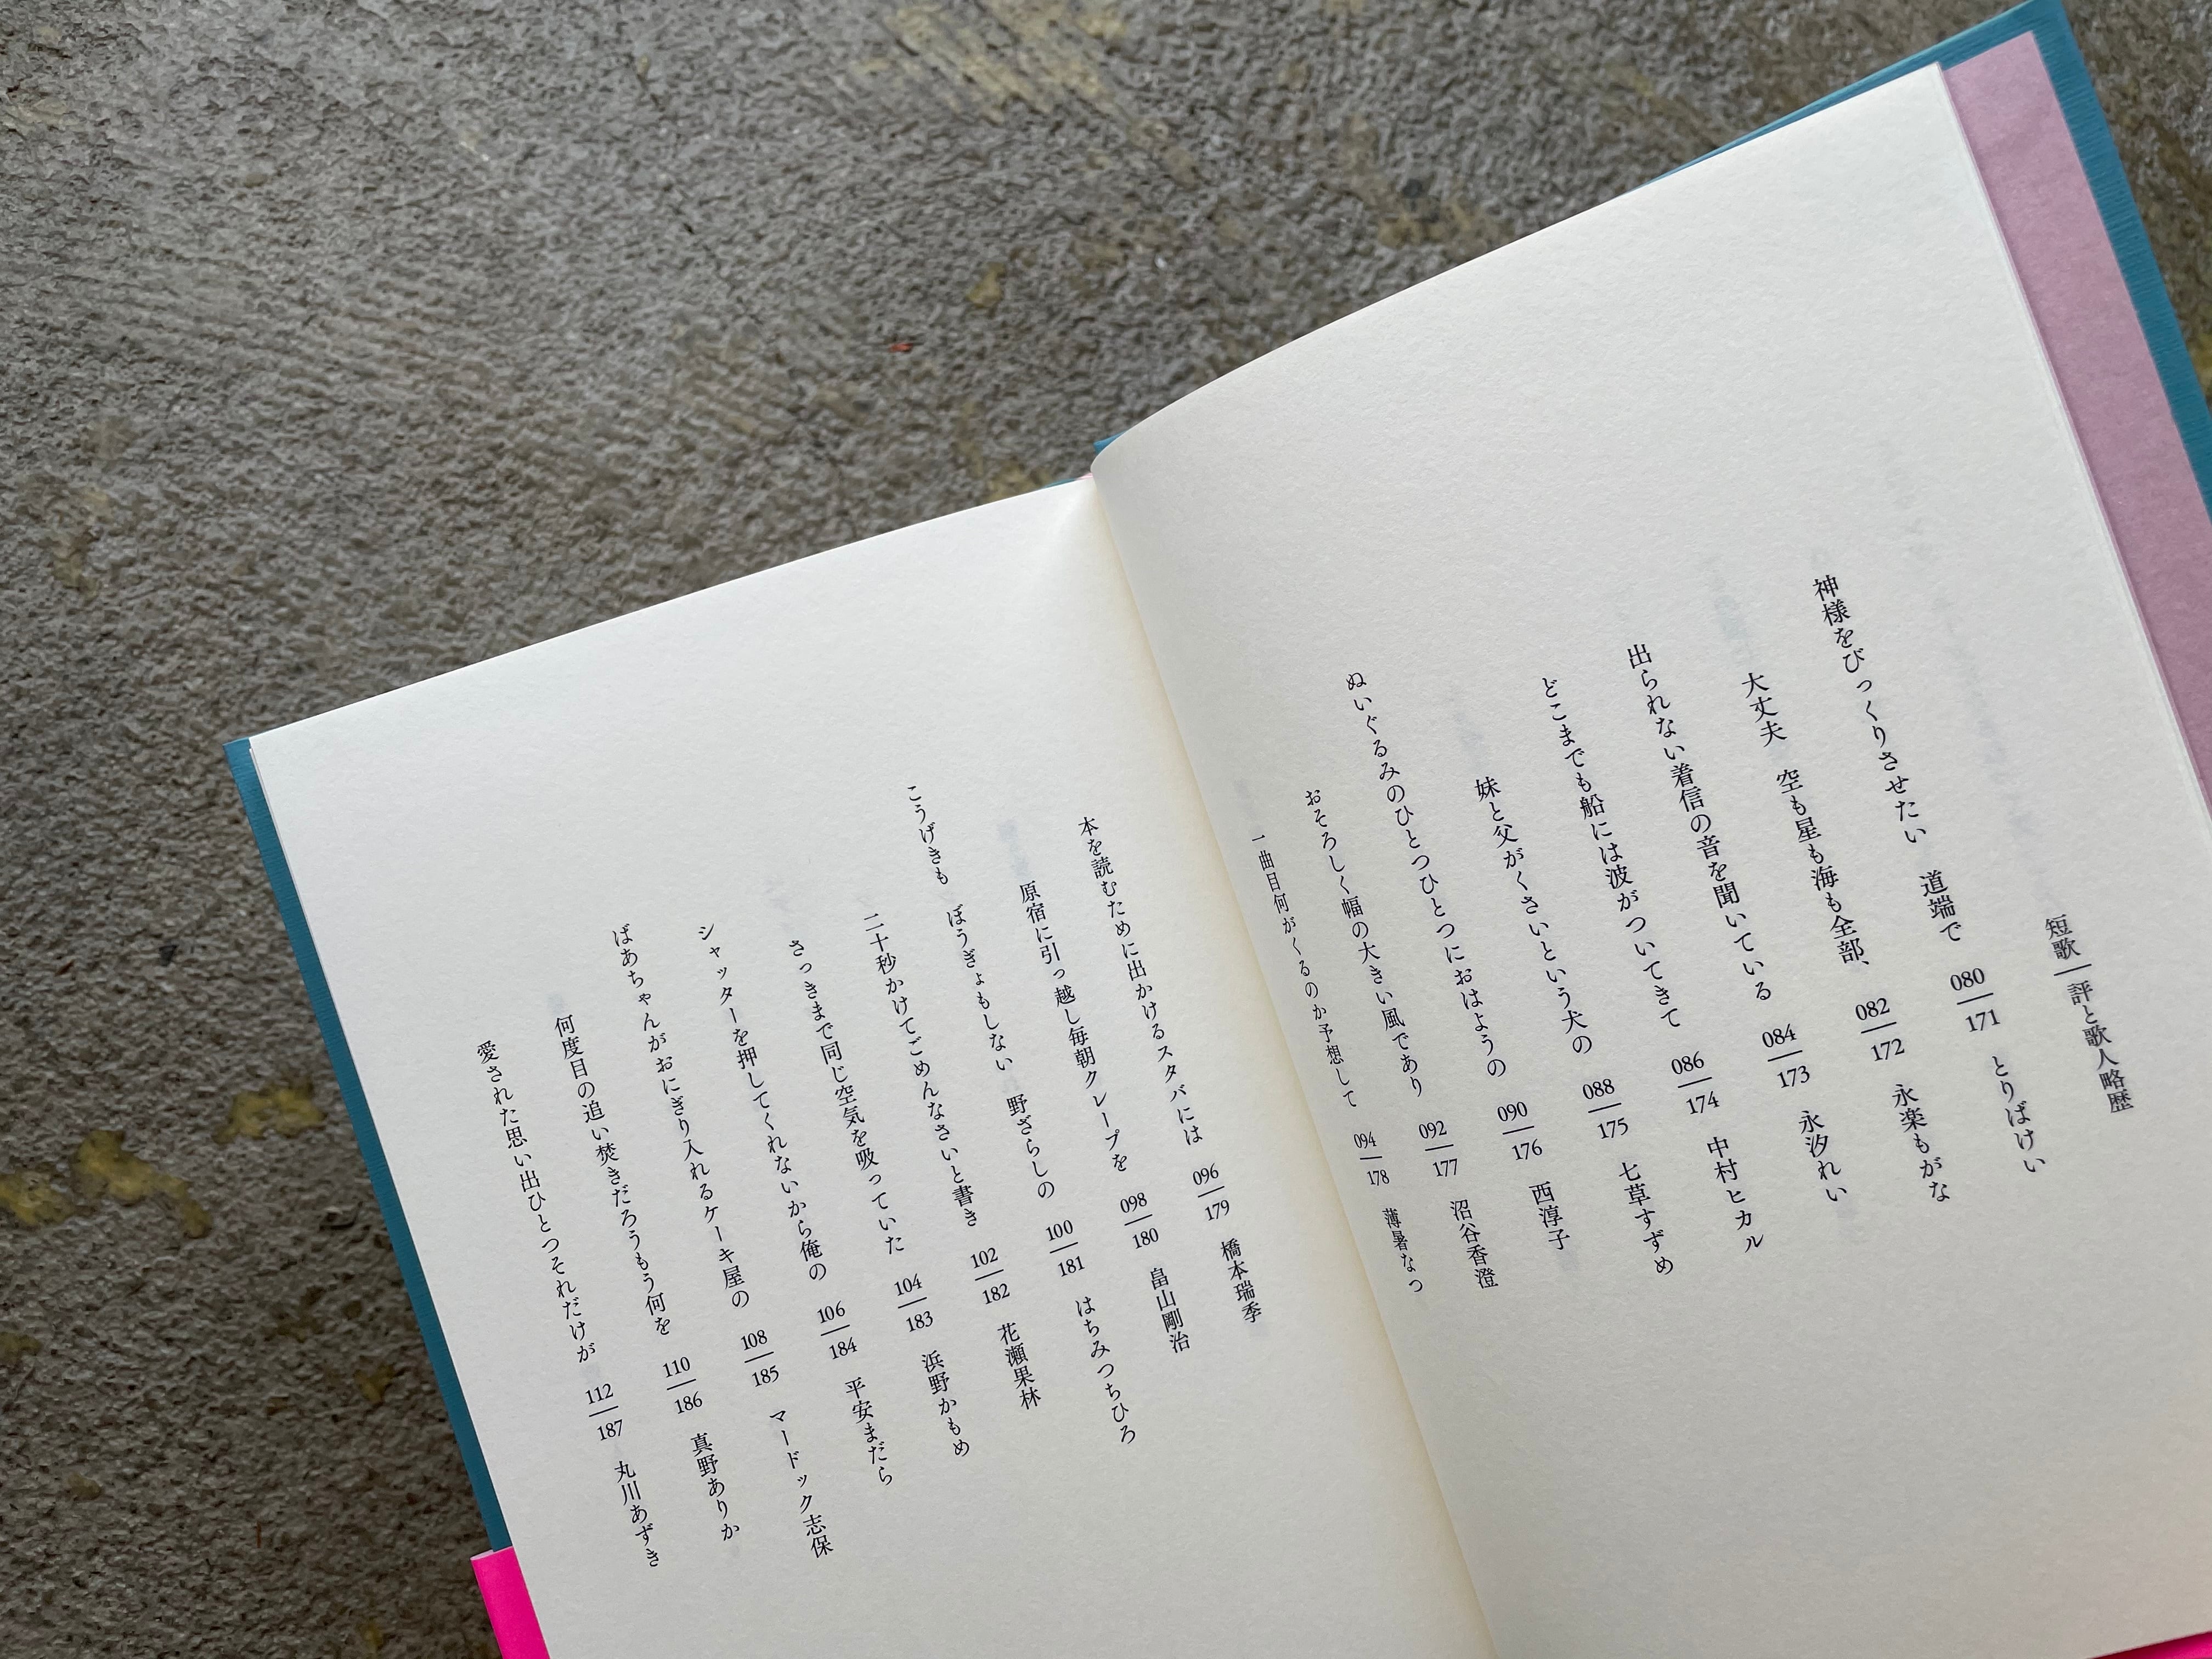 短歌|評と歌人略歴
神様をびっくりさせたい 道端で 080|171 とりばけい
大丈夫 空も星も海も全部、 082|172 永楽もがな
出られない着信の音を聞いている 084|173 永汐れい
どこまでも船には波がついてきて 086|174 中村ヒカル
妹と父がくさいという犬の 088|175 七草すずめ
ぬいぐるみのひとつひとつにおはようの 090|176 西淳子
おそろしく幅の大きい風であり 092|177 沼谷香澄
一曲目何がくるのか予想して 094|178 薄暑なつ
本を読むために出かけるスタバには 096|179 橋本瑞季
原宿に引っ越し毎朝クレープを 098|180 畠山剛治
こうげきも ぼうぎょもしない 野ざらしの 100|181 はちみつちひろ
二十秒かけてごめんなさいと書き 102|182 花瀬果林
さっきまで同じ空気を吸っていた 104|183 浜野かもめ
シャッターを押してくれないから俺の 106|184 平安まだら
ばあちゃんがおにぎり入れるケーキ屋の 108|185 マードック志保
何度目の追い焚きだろうもう何を 110|186 真野ありか
愛された思い出ひとつそれだけが 112|187 丸川あずき